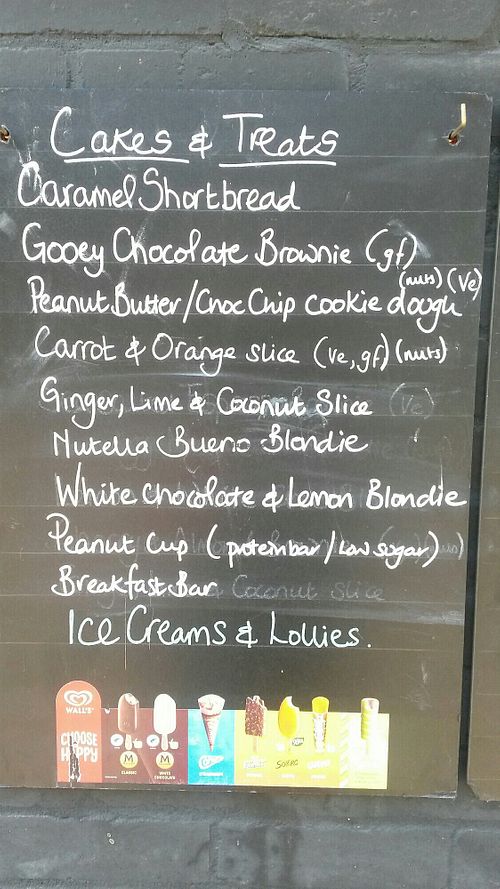 Cakes & Treats
Caramel Shortbread
Gooey Chocolate Brownie (gf)
(nuts) (Ve)
Peanut Butter/Choc Chip cookie dough
Carrot & Orange slice (ve, gf) (nuts)
Ginger, Lime & Coconut Slice (ve)
Nutella Bueno Blondie
White chocolate & Lemon Blondie
Peanut Cup (protein bar / Low sugar)
Breakfast Bar
Coconut Slice
Ice Creams & Lollies.
WALL'S
CHOOSE
HAPPY
M
CLASSIC
M
WHITE
CHOCOLATE
SOLERO